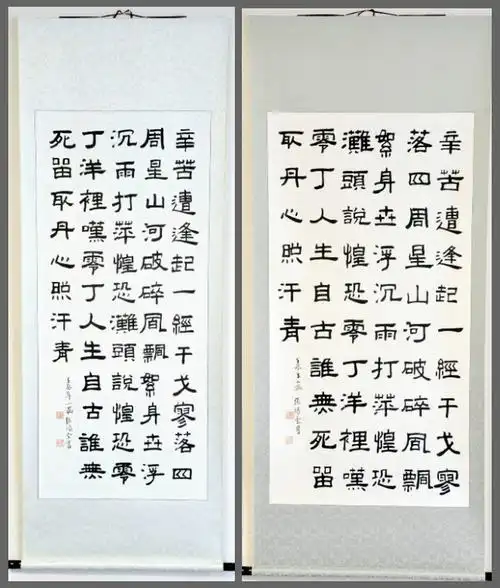 辛苦遭逢起一經干戈寥落四
周星山河破碎風飄絮身世浮
沉雨打萍惶恐灘頭說惶恐零
丁洋裡嘆零丁人生自古誰無
死留取丹心照汗青
辛苦遭逢起一經干戈寥
落四周星山河破碎風飄
絮身世浮沉雨打萍惶恐
灘頭說惶恐零丁洋裡嘆
零丁人生自古誰無死留
取丹心照汗青